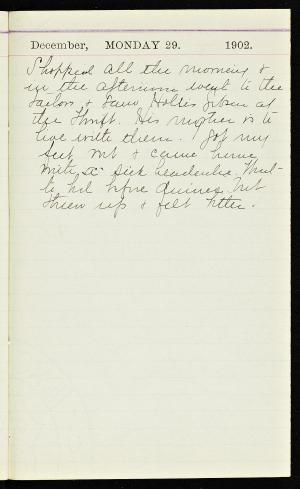 December, MONDAY 29. 1902.
Shopped all the morning &
in the afternoon went to the
Tailor & saw Hollis Gibson at
the Thrift. His mother is to
live with them. Got my
feet wet & came home
with a sick headache. Went
to bed before dinner but
threw up & felt better.